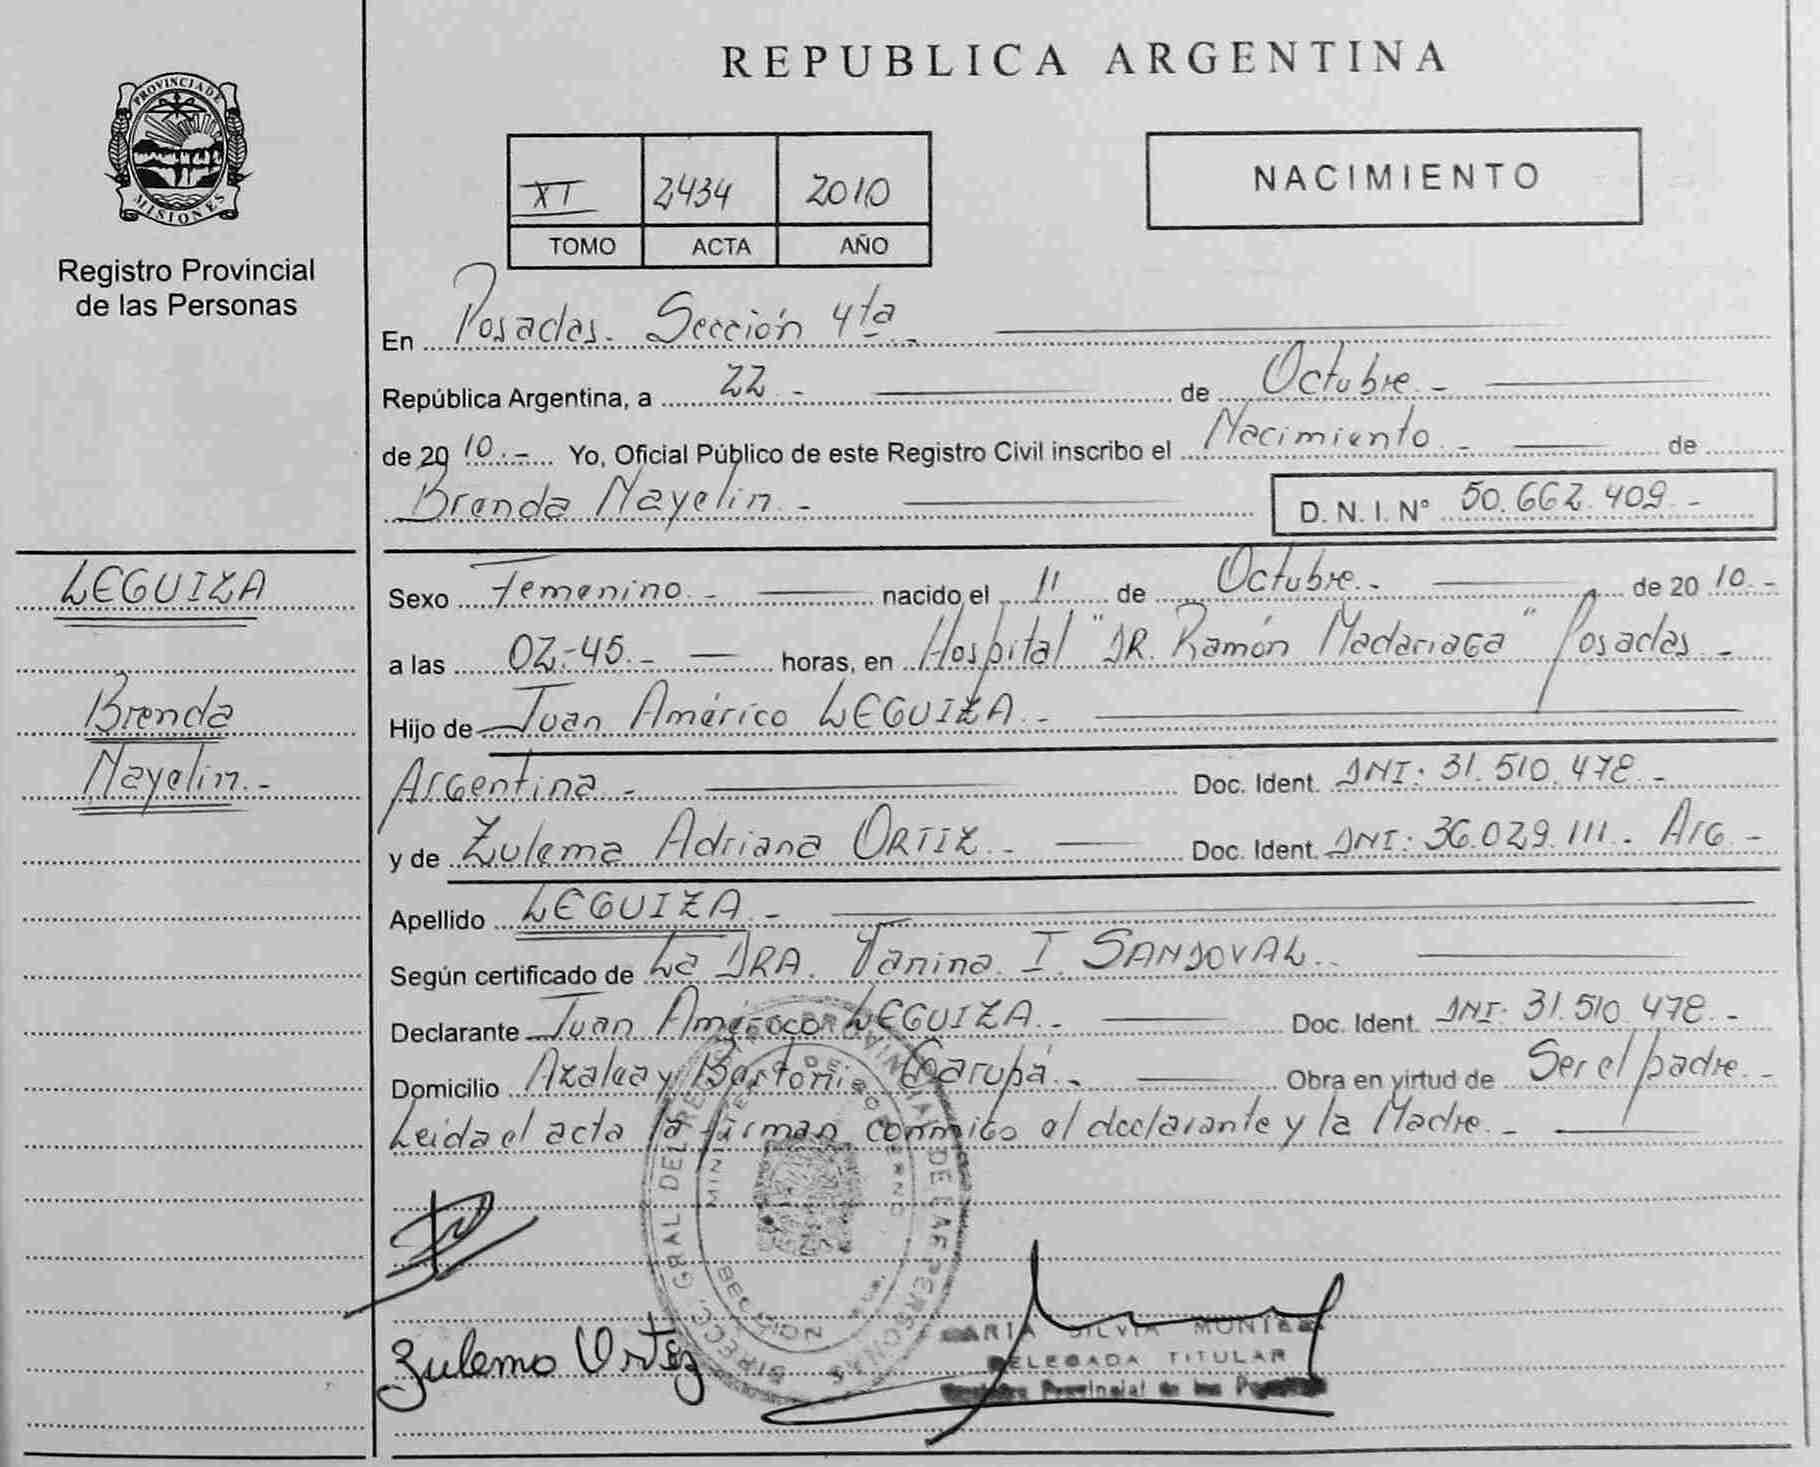 REPUBLICA ARGENTINA
PROVINCIA DE
MISIONES
Registro Provincial
de las Personas
XI 2434 2010
TOMO ACTA AÑO
NACIMIENTO
En Posadas. Sección 4ta.
República Argentina, a 22.- de Octubre.-
de 2010.- Yo, Oficial Público de este Registro Civil inscribo el Nacimiento.- de
Brenda Nayelin.- D. N. I. N° 50.662.409.-
LEGUIZA
Brenda
Nayelin.-
Sexo Femenino.- nacido el 11 de Octubre.- de 2010.-
a las 02:45.- horas, en Hospital "DR. Ramón Madariaga" Posadas.-
Hijo de Juan Américo LEGUIZA.-
Argentina.- Doc. Ident. DNI: 31.510.478.-
y de Zulema Adriana ORTIZ.- Doc. Ident. DNI: 36.029.111.- Arg.-
Apellido LEGUIZA.-
Según certificado de La DRA. Yanina I. SANDOVAL.
Declarante Juan Américo LEGUIZA.- Doc. Ident. DNI: 31.510.478.-
Domicilio Azalea y Garupá.- Obra en virtud de Ser el padre.-
Leida el acta la firman conmigo el declarante y la Madre.-
DIRECC. GRAL DEL REG. PROVINCIAL DE LAS PERSONAS
DE GOBIERNO
Zulema Ortiz
MARIA SILVIA
DELEGADA TITULAR
Registro Provincial de las Personas